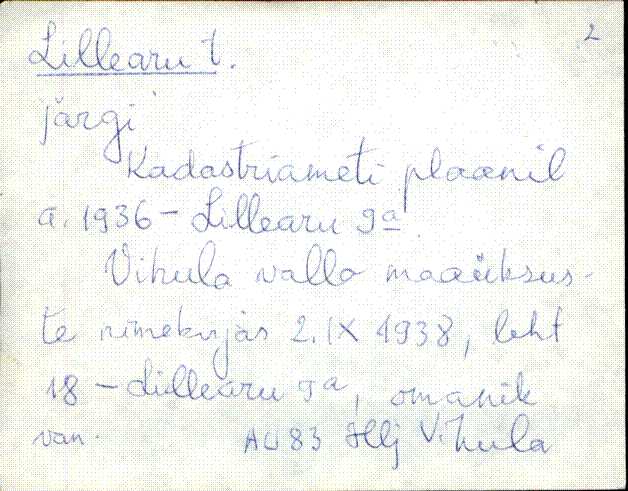 2
Lillearu t.
järgi
Kadastriameti plaanil
a. 1936 – Lillearu 9a.
Vihula valla maaüksus-
te nimekirjas 2. IX 1938, leht
18 – Lillearu 9a, omanik
van. AU 83 Hlj Vihula